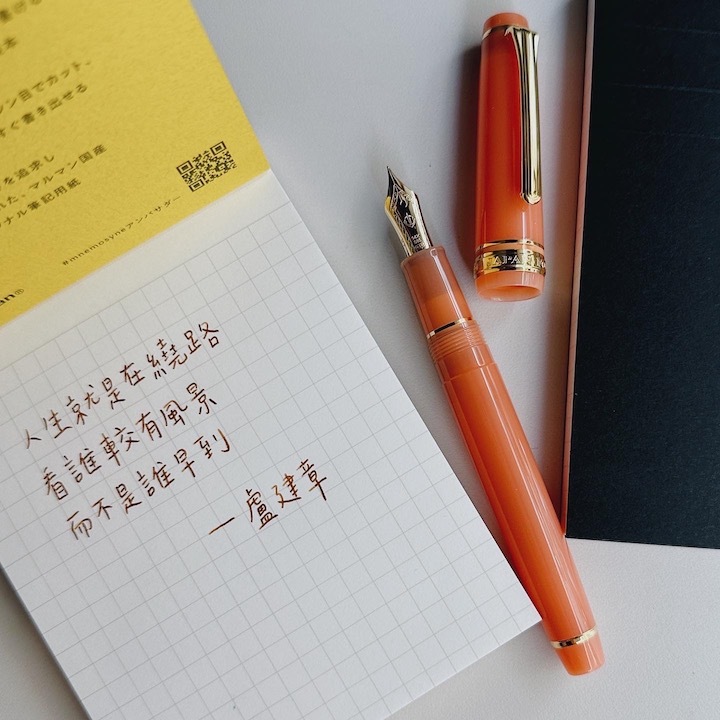 本
ン目でカット、
すぐ書き出せる
を追求し
れた、マルマン国産
ナル筆記用紙
#mnemosyneアンバサダー
an®
人生就是在繞路
看誰較有風景
而不是誰早到
—盧建章